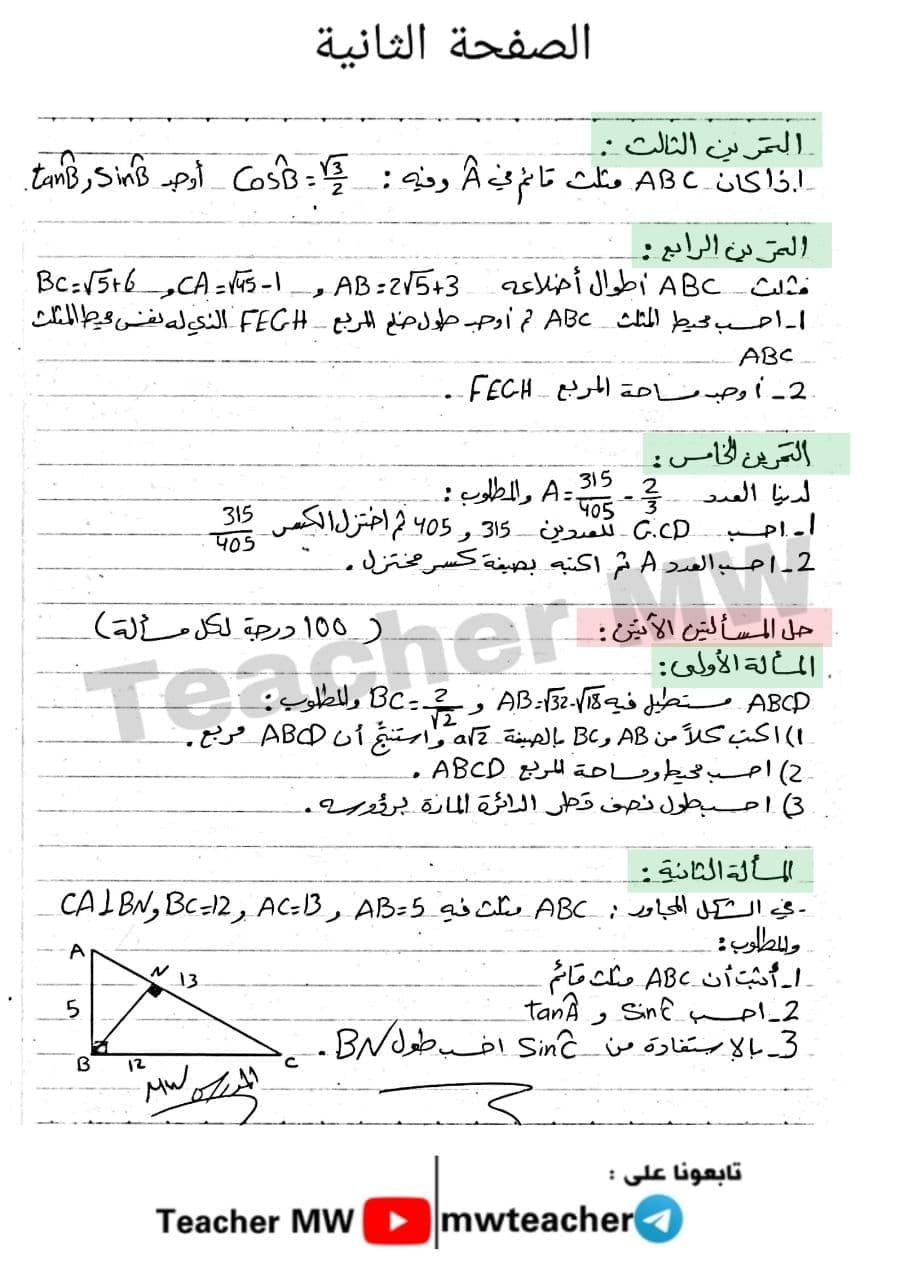 الصفحة الثانية
التمرين الثالث :
إذا كان ABC مثلث قائم في Â وفيه : CosB̂ = √3/2 أوجد SinB̂ و tanB̂.
التمرين الرابع :
مثلث ABC أطوال أضلاعه AB = 2√5+3 و CA = √45-1 و BC = √5+6
1- احسب محيط المثلث ABC ثم أوجد طول ضلع المربع FEGH الذي له نفس محيط المثلث
ABC
2- أوجد مساحة المربع FEGH .
التمرين الخامس :
لدينا العدد A = 315/405 - 2/3 والمطلوب :
1- احسب G.CD للعددين 315 و 405 ثم اختزل الكسر 315/405
2- احسب العدد A ثم اكتبه بصيغة كسر مختزل .
حل المسألتين الآتيتين : ( 100 درجة لكل مسألة)
المسألة الأولى:
ABCD مستطيل فيه AB = √32-√18 و BC = 2/√2 والمطلوب :
1) اكتب كلاً من AB و BC بالصيغة a√2 واستنتج أن ABCD مربع .
2) احسب محيط ومساحة المربع ABCD .
3) احسب طول نصف قطر الدائرة المارة برؤوسه .
المسألة الثانية :
في الشكل المجاور : ABC مثلث فيه AB = 5 و AC = 13 و BC = 12 و CA⊥BN
والمطلوب :
1- أثبت أن ABC مثلث قائم
2- احسب SinĈ و tanÂ
3- بالاستفادة من SinĈ احسب طول BN .
A
N
13
5
B
12
C
MW
Teacher MW
تابعونا على :
Teacher MW
mwteacher